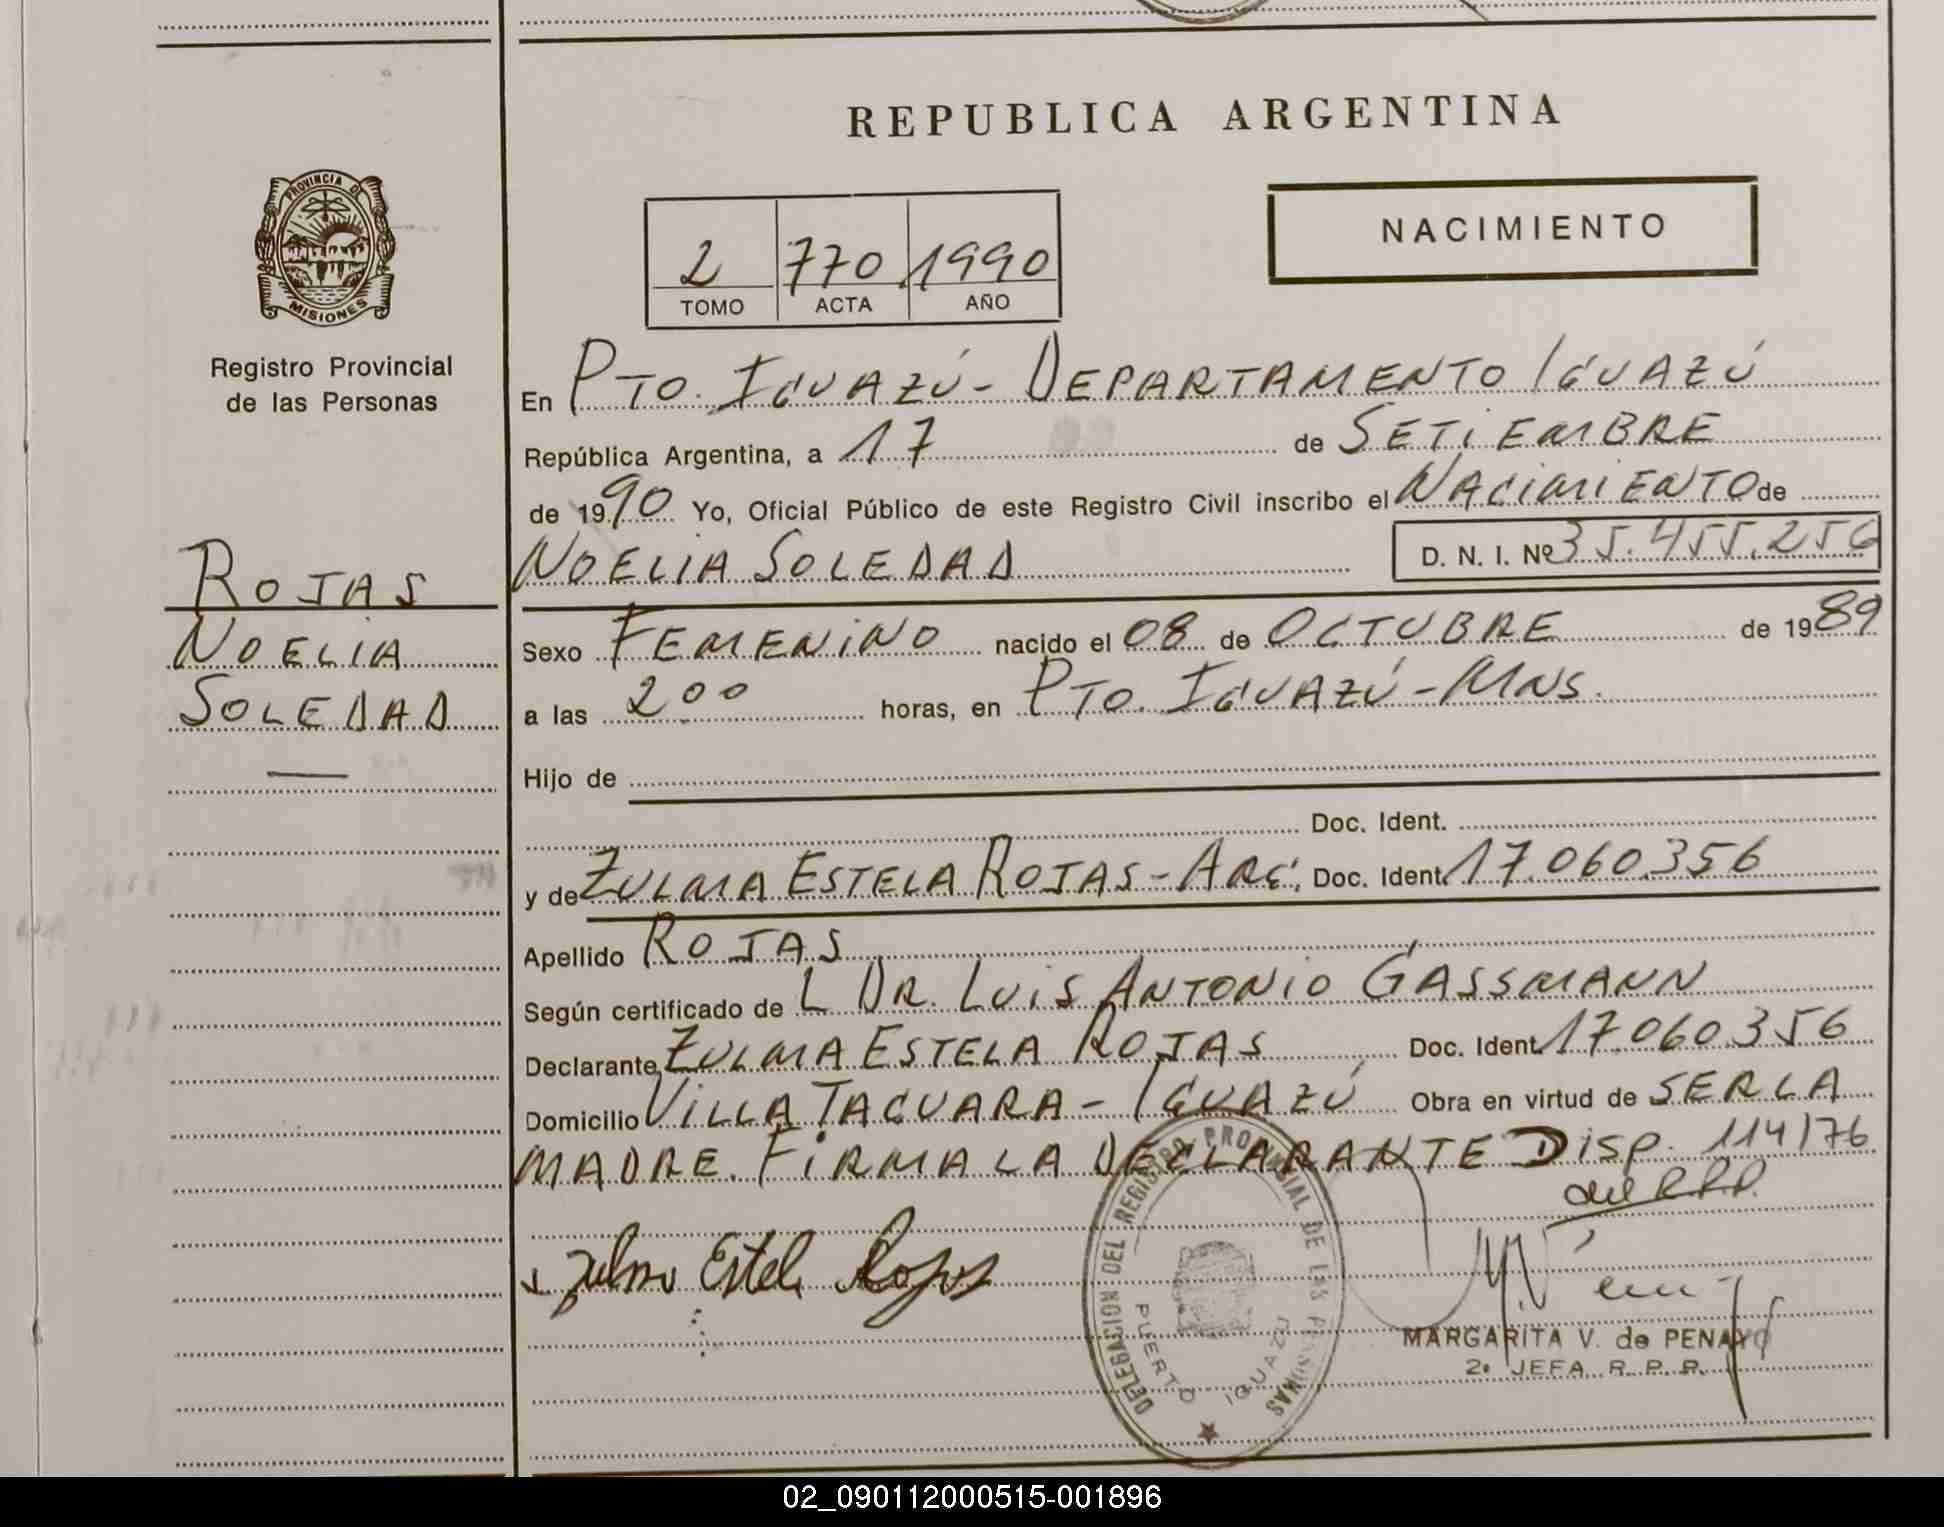 REPUBLICA ARGENTINA
PROVINCIA DE
MISIONES
Registro Provincial
de las Personas
NACIMIENTO
2 770 1990
TOMO ACTA AÑO
En PTO. IGUAZÚ - DEPARTAMENTO IGUAZÚ
República Argentina, a 17 de SETIEMBRE
de 1990 Yo, Oficial Público de este Registro Civil inscribo el NACIMIENTO de
NOELIA SOLEDAD D. N. I. Nº 35.455.256
ROJAS
NOELIA
SOLEDAD
Sexo FEMENINO nacido el 08 de OCTUBRE de 1989
a las 2 00 horas, en PTO. IGUAZÚ - MNS.
Hijo de
Doc. Ident.
y de ZULMA ESTELA ROJAS - ARG. Doc. Ident. 17.060.356
Apellido ROJAS
Según certificado de L DR. LUIS ANTONIO GASSMANN
Declarante ZULMA ESTELA ROJAS Doc. Ident. 17.060.356
Domicilio VILLA TACUARA - IGUAZÚ Obra en virtud de SER LA
MADRE. FIRMA LA DECLARANTE DISP. 114/76
del R.P.P.
Zulma Estela Rojas
DELEGACION DEL REGISTRO PROVINCIAL DE LAS PERSONAS
PUERTO IGUAZU
MARGARITA V. de PENAYO
2º JEFA R. P. P.
02_090112000515-001896